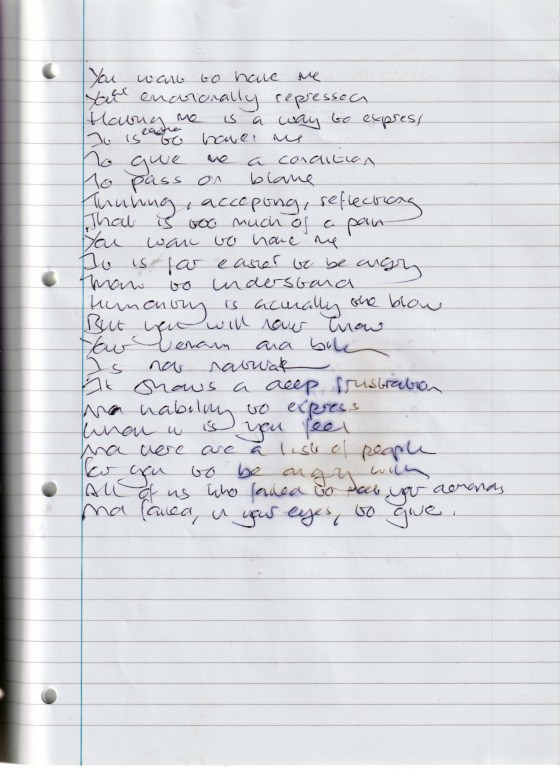 You want to hate me
You're emotionally repressed
Hating me is a way to express
It is easier to hate me
To give me a condition
To pass on blame
Thinking, accepting, reflecting
That is too much of a pain
You want to hate me
It is far easier to be angry
Than to understand
Humanity is actually the
But you will never know
Your venom and bile
Is not natural
It shows a deep frustration
And inability to express
What it is you feel
And there are a list of people
For you to be angry with
All of us who failed to your demands
And failed, in your eyes, to give.